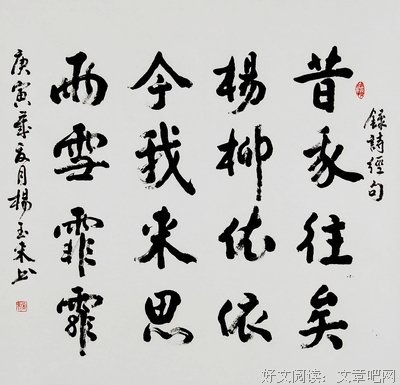 錄詩經句
昔我往矣
楊柳依依
今我来思
雨雪霏霏
庚寅歲夏月楊玉来书
好文阅读：文章吧网